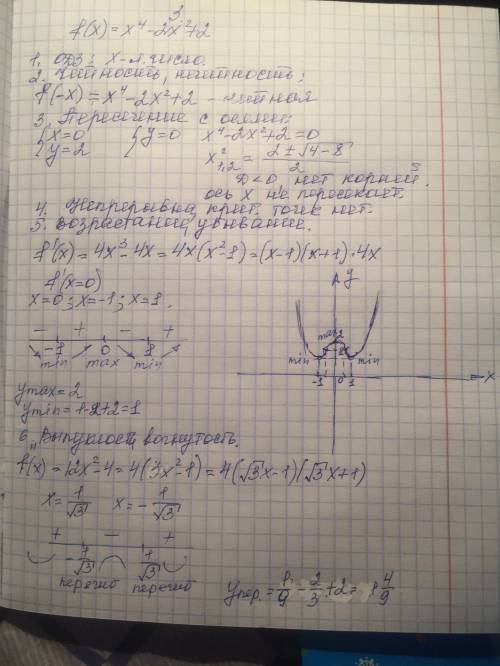 3
f(x) = x⁴ - 2x² + 2
1. ОДЗ: x - л. число.
2. Чётность, нечётность:
f(-x) = x⁴ - 2x² + 2 - чётная
3. Пересечение с осями:
{x=0 {y=0 x⁴ - 2x² + 2 = 0
{y=2 x²₁,₂ = (2 ± √4-8)/2
D<0 нет корней,
ось x не пересекает.
4. Непрерывна, крит. точек нет.
5. Возрастание, убывание.
f'(x) = 4x³ - 4x = 4x(x² - 1) = (x-1)(x+1)·4x
f'(x=0)
x=0; x=-1; x=1.
- + - +
-1 0 1
min max min
y
max 2
min min
-1 0 1 x
ymax = 2
ymin = 1-2+2=1
6. Выпуклость, вогнутость.
f(x) = 12x² - 4 = 4(3x² - 1) = 4(√3x - 1)(√3x + 1)
x = 1/√3 x = -1/√3
+ - +
-1/√3 1/√3
перегиб перегиб
yпер. = 1/9 - 2/3 + 2 = 1 4/9